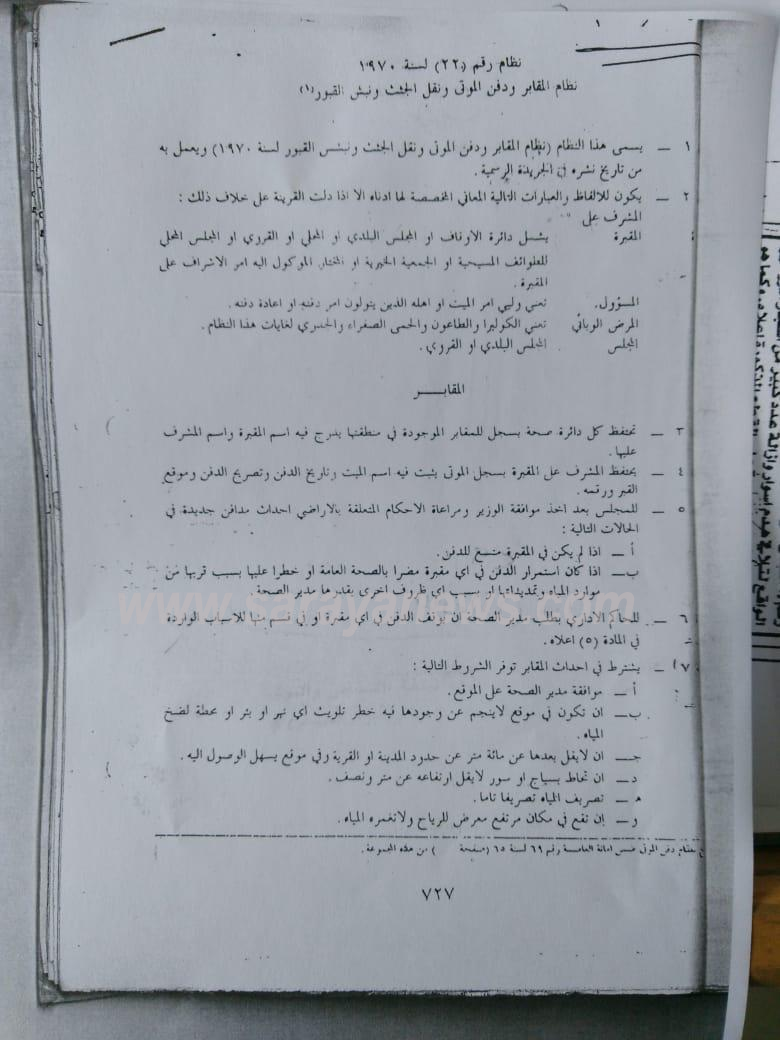 نظام رقم (٢٢) لسنة ١٩٧٠
نظام المقابر ودفن الموتى ونقل الجثث ونبش القبور (١)
١ — يسمى هذا النظام (نظام المقابر ودفن الموتى ونقل الجثث ونبش القبور لسنة ١٩٧٠) ويعمل به
من تاريخ نشره في الجريدة الرسمية .
٢ — يكون للالفاظ والعبارات التالية المعاني المخصصة لها ادناه الا اذا دلت القرينة على خلاف ذلك :
المشرف على
المقبرة يشمل دائرة الاوقاف او المجلس البلدي او المحلي او القروي او المجلس المحلي
للطوائف المسيحية او الجمعية الخيرية او المختار الموكول اليه امر الاشراف على
المقبرة .
المسؤول . تعني وليي امر الميت او اهله الذين يتولون امر دفنه او اعادة دفنه .
المرض الوبائي تعني الكوليرا والطاعون والحمى الصفراء والجدري لغايات هذا النظام .
المجلس المجلس البلدي او القروي .
المقابـــر
٣ — تحتفظ كل دائرة صحة بسجل للمقابر الموجودة في منطقتها يدرج فيه اسم المقبرة واسم المشرف
عليها .
٤ — يحتفظ المشرف على المقبرة بسجل الموتى يثبت فيه اسم الميت وتاريخ الدفن وتصريح الدفن وموقع
القبر ورقمه .
٥ — للمجلس بعد اخذ موافقة الوزير ومراعاة الاحكام المتعلقة بالاراضي احداث مدافن جديدة في
الحالات التالية :
أ — اذا لم يكن في المقبرة متسع للدفن .
ب — اذا كان استمرار الدفن في اي مقبرة مضرا بالصحة العامة او خطرا عليها بسبب قربها من
موارد المياه وتمديداتها او بسبب اي ظروف اخرى يقدرها مدير الصحة .
www.sarayanews.com
٦ — للحاكم الاداري بطلب مدير الصحة ان يوقف الدفن في اي مقبرة او في قسم منها للاسباب الواردة
في المادة (٥) اعلاه .
٧ — يشترط في احداث المقابر توفر الشروط التالية :
أ — موافقة مدير الصحة على الموقع .
ب — ان تكون في موقع لاينجم عن وجودها فيه خطر تلويث اي نهر او بئر او محطة لضخ
المياه .
جـ — ان لايقل بعدها عن مائة متر عن حدود المدينة او القرية وفي موقع يسهل الوصول اليه .
د — ان تحاط بسياج او سور لايقل ارتفاعه عن متر ونصف .
هـ — تصريف المياه تصريفا تاما .
و — ان تقع في مكان مرتفع معرض للرياح ولاتغمره المياه .
دفن الموتى ضمن امانة العاصمة رقم ٦٩ لسنة ٦٥ (صفحة ) من هذه المجموعة .
٧٢٧